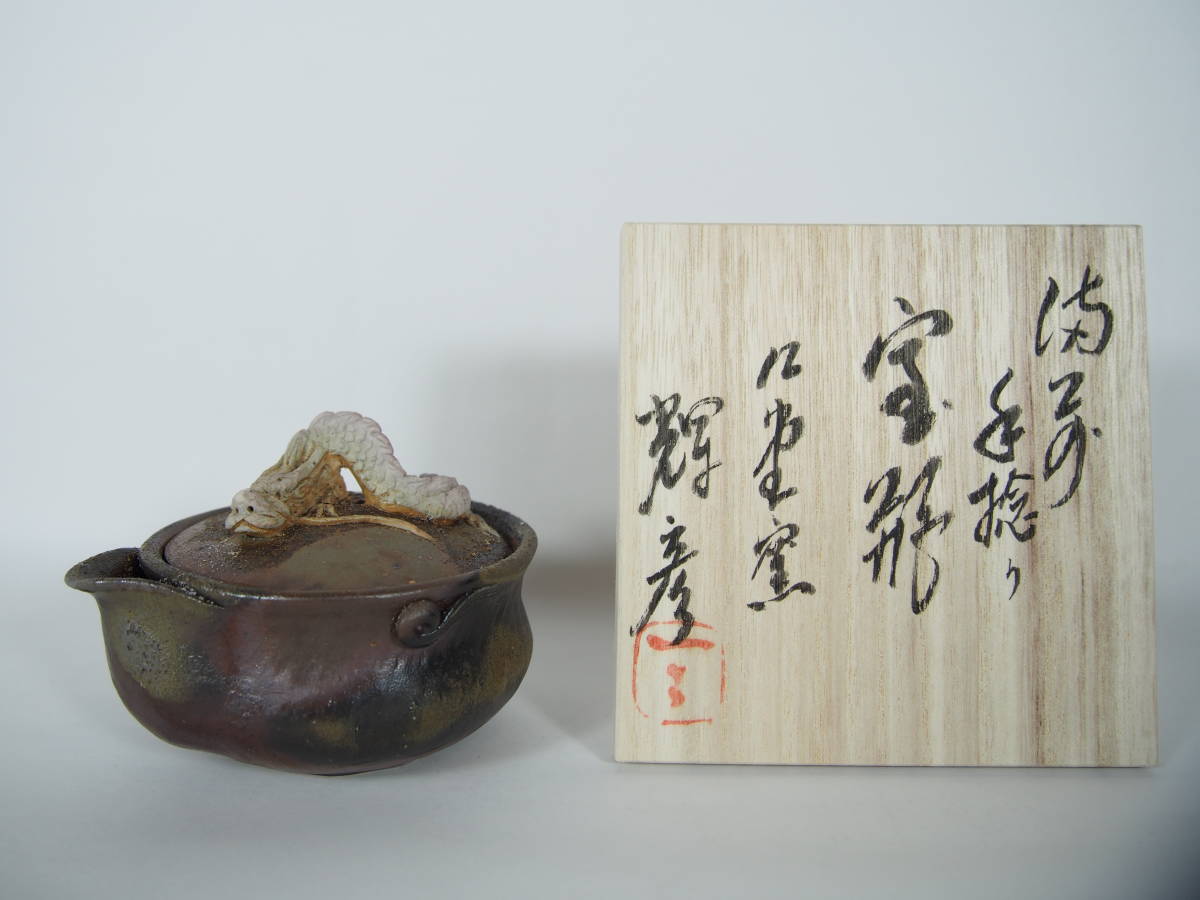 備前
手捻り
宝瓶
堂窯
輝彦